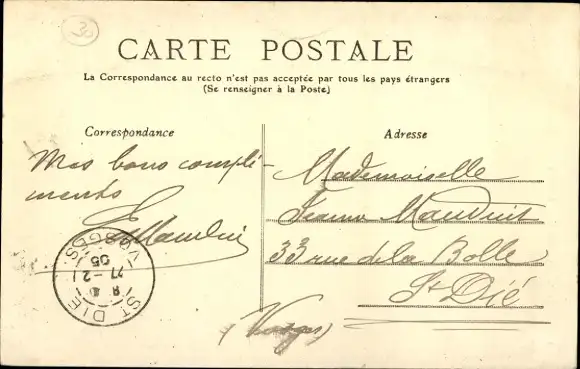 30
CARTE POSTALE
La Correspondance au recto n'est pas acceptée par tous les pays étrangers
(Se renseigner à la Poste)
Correspondance
Mes bons compli-
ments
E
Adresse
Mademoiselle
Jeanne Mauduit
33 rue de la Bolle
St Dié
(Vosges)
ST DIE
VOSGES
05